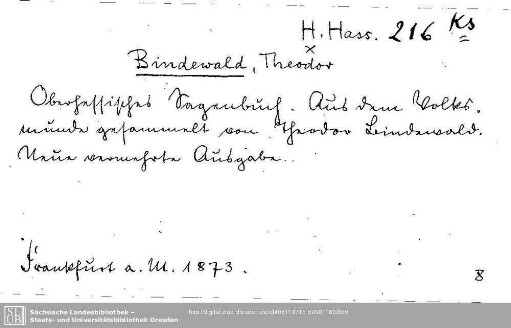 H. Hass. 216 Ks
x
Bindewald, Theodor
Oberhessisches Sagenbuch. Aus dem Volks-
munde gesammelt von Theodor Bindewald.
Neue vermehrte Ausgabe.
Frankfurt a. M. 1873.
8
Sächsische Landesbibliothek –
Staats- und Universitätsbibliothek Dresden